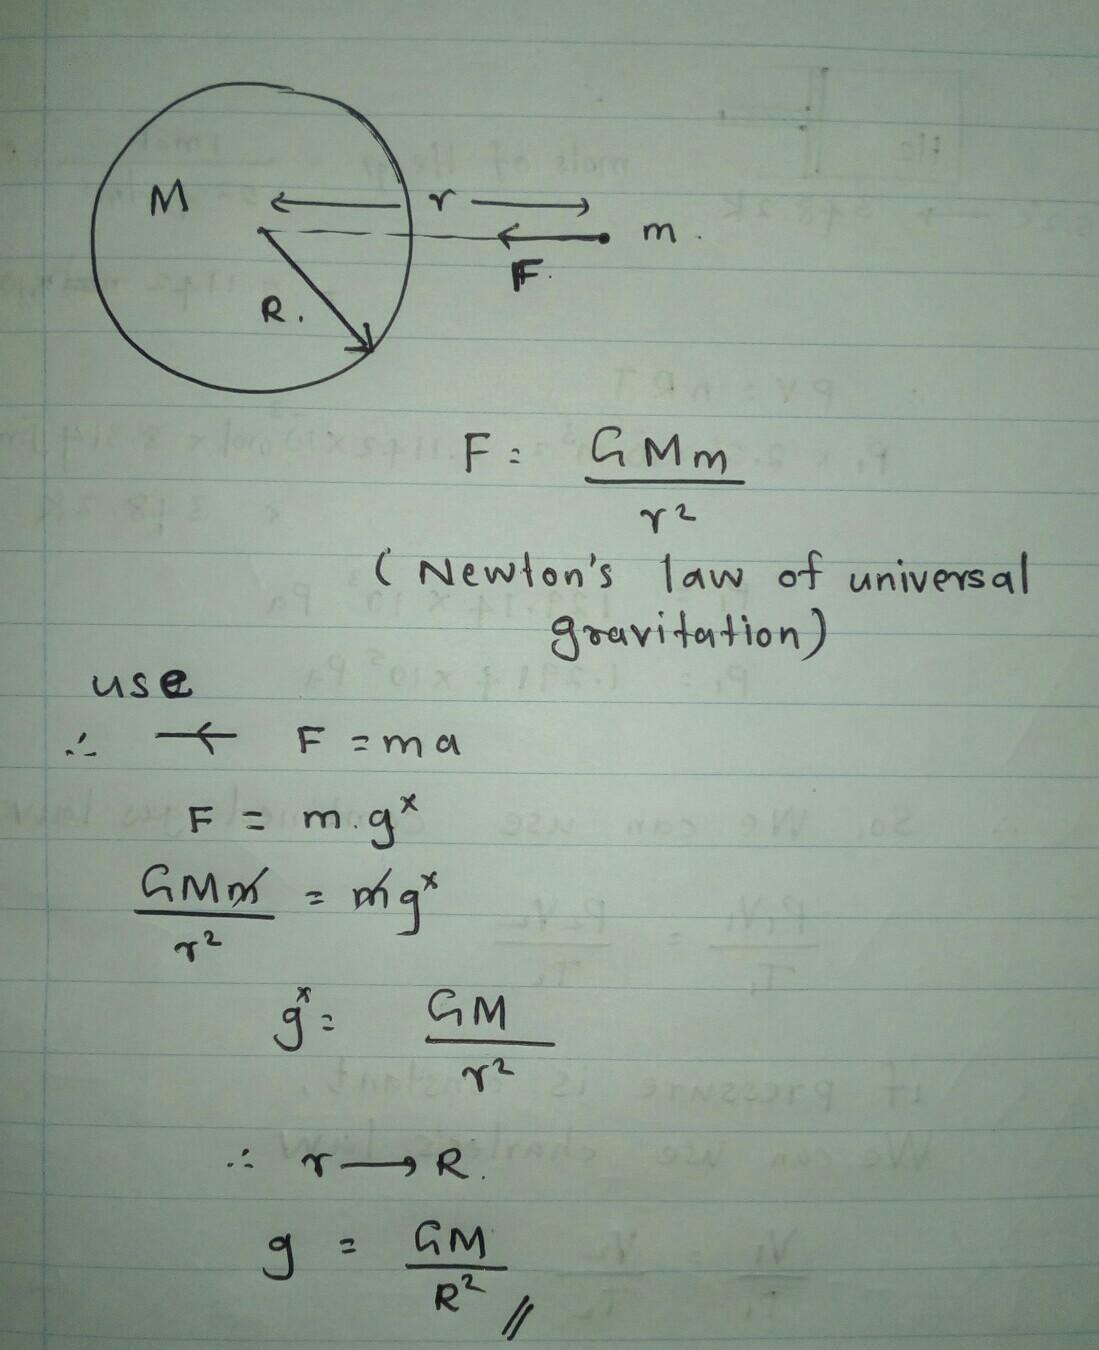 M r m.
F.
R.
F = GMm / r²
(Newton's law of universal
gravitation)
use
∴ ← F = ma
F = m.gˣ
GMm / r² = mgˣ
gˣ = GM / r²
∴ r → R.
g = GM / R² //